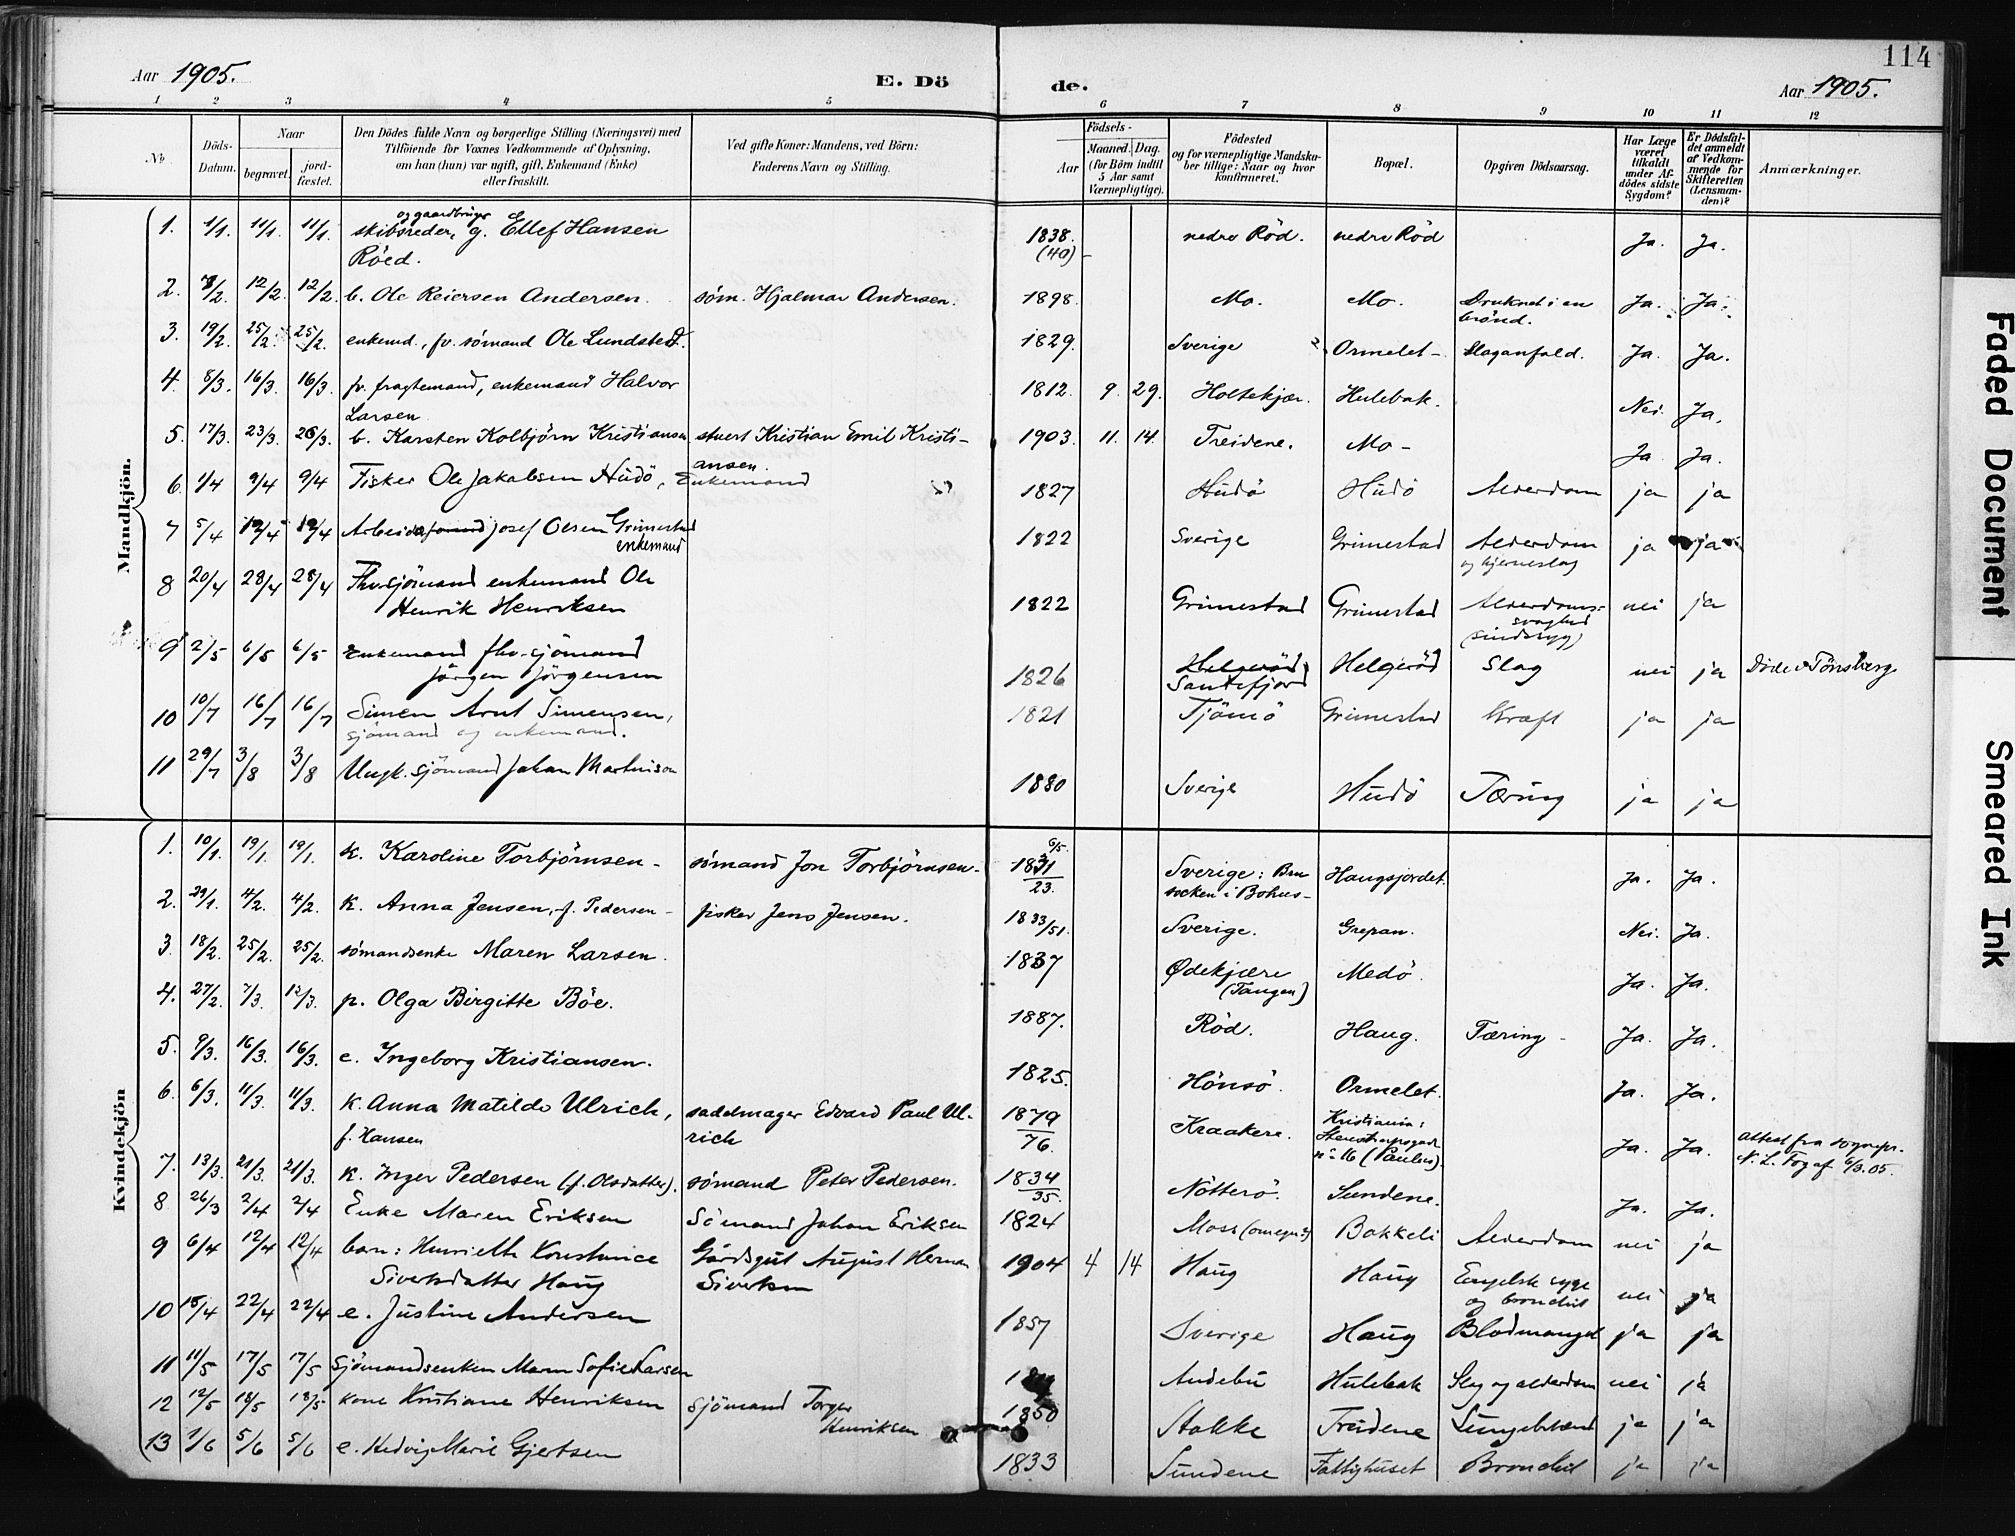 114
Aar 1905.
E. Dö
de.
Aar 1905.
1 2 3 4 5 6 7 8 9 10 11 12
No
Döds-
Datum.
Naar
begravet.
jord-
fæstet.
Den Dödes fulde Navn og borgerlige Stilling (Næringsvei) med
Tilföiende for Voxnes Vedkommende af Oplysning,
om han (hun) var ugift, gift, Enkemand (Enke)
eller fraskilt.
Ved gifte Koner: Mandens, ved Börn:
Faderens Navn og Stilling.
Födsels-
Aar
Maaned.
Dag.
(for Börn indtil
5 Aar samt
Værnepligtige).
Födested
og for værnepligtige Mandska-
ber tillige: Naar og hvor
konfirmeret.
Bopæl.
Opgiven Dödsaarsag.
Har Læge
været
tilkaldt
under Af-
dödes sidste
Sygdom?
Er Dödsfal-
det anmeldt
af Vedkom-
mende for
Skifteretten
(Lensman-
den)?
Anmærkninger.
Mandkjön.
og gaardbruger
1. 1/1. 11/1. 11/1. skibsreder, g. Ellef Hansen 1838. nedre Rød. nedre Rød Ja. Ja.
Röed. (40)
2. 7/2. 12/2. 12/2. b. Ole Reiersen Andersen. søm. Hjalmar Andersen. 1898. Mo. Mo. Druknet i en Ja. Ja.
brönd.
3. 19/2. 25/2. 25/2. enkemd., fv. sømand Ole Lundsted. 1829. Sverige Ormelet Slaganfald. Ja. Ja.
4. 8/3. 16/3. 16/3. fv. fragtemand, enkemand Halvor 1812. 9. 29. Holtekjær. Hulebak. Nei. Ja.
Larsen.
5. 17/3. 23/3. 26/3. b. Karsten Kolbjörn Kristiansen stuert Kristian Emil Kristi- 1903. 11. 14. Treidene. Mo - Ja. Ja.
ansen.
6. 1/4 9/4 9/4 Fisker Ole Jakobsen Hudö, Enkemand 1827 Hudö Hudö Alderdom ja ja
7 5/4 12/4 12/4 Josef Olsen Grimestad 1822 Sverige Grimestad Alderdom ja ja
enkemand og hjerneslag
8 20/4 28/4 28/4 Fhv. sjömand enkemand Ole
Henrik Henriksen 1822 Grimestad Grimestad Alderdoms- nei ja
svaghed
(sindssyg)
9 2/5 6/5 6/5 Enkemand fhv. sjömand
Jörgen Jörgensen 1826 Helgeröd Helgeröd Slag nei ja Döde i Tönsberg
Sandefjord
10 10/7 16/7 16/7 Simen Arnt Simensen, 1821 Tjömö Grimestad Kræft ja ja
sjömand og enkemand.
11 29/7 3/8 3/8 Ungk. sjömand Johan Martinson 1880 Sverige Hudö Tæring ja ja
Kvindekjön
1. 10/1. 19/1. 19/1. k. Karoline Torbjörnsen - sømand Jon Torbjörnsen - 6/5. 1831 Sverige: Bro Haugsjordet. Ja. Ja.
23. socken i Bohus-
2. 29/1. 4/2. 4/2. k. Anna Jensen, f. Pedersen - fisker Jens Jensen. 1833/51. Sverige. Grepan. Nei. Ja.
3. 18/2. 25/2. 25/2. sømandsenke Maren Larsen. 1837 Ødekjære Medö. Ja. Ja.
(Tangen)
4. 27/2. 7/3. 12/3. p. Olga Birgitte Böe. 1887. Röd. Haug. Tæring - Ja. Ja.
5. 9/3. 16/3. 16/3. e. Ingeborg Kristiansen. 1825. Hönsö. Ormelet. Ja. Ja.
6. 6/3. 11/3. 11/3. k. Anna Matilde Ulrich, sadelmager Edvard Paul Ul- 1879 Kraakere. Kristiania: Ja. Ja. attest fra sognepr.
f. Hansen rich 76. n° 16 (Paulus). N. L. 6/3.05.
7. 13/3. 21/3. 21/3. k. Inger Pedersen (f. Olsdatter). sømand Peter Pedersen. 1834 Nötterö. Sundene. Ja. Ja.
35.
8. 26/3 2/4 2/4 Enke Maren Eriksen Sömand Johan Eriksen 1824 Moss (omegn?) Bakkeli Alderdom nei ja
9 6/4 12/4 12/4 barn: Henriette Konstance Gårdsgut August Herman 1904 4 14 Haug Haug Engelsk syge nei ja
Sivertsdatter Haug Sivertsen og bronchit
10 15/4 22/4 22/4 e. Justine Andersen 1857 Sverige Haug Blodmangel ja ja
11 11/5 17/5 17/5 Sjömandsenken Maren Sofie Larsen Andebu Hulebak Slag og alderdom nei ja
12 12/5 18/5 18/5 kone Kristiane Henriksen sjömand Torger 1850 Stokke Treidene Lungebetænd ja ja
Henriksen
13 1/6 5/6 5/6 e. Hedvig Marie Gjertsen 1833 Sundene Fattighuset Bronchit ja ja
Faded Document
Smeared Ink